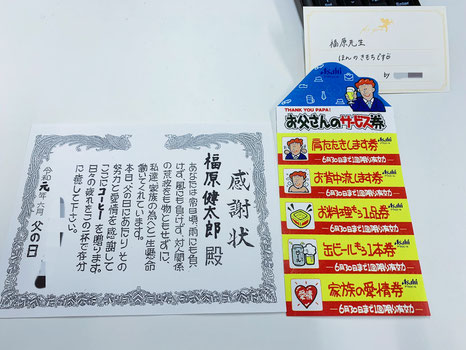 感謝状
福原健太郎殿
あなたは雨の日も雨にも負
けず、風にも負けず、対人関係
の荒波をも物ともせずに、
私達家族の為に一生懸命
働いてくれています。
本日父の日にあたり その
努力と愛情を感謝して
ここにコーヒーを贈ります。
日々の疲れをこの一杯で存分
に癒して下さい。
令和元年六月 父の日
福原先生
ほんのきもちです
by
Asahi
THANK YOU PAPA!
お父さんのサービス券
肩たたきします券
Asahi
6月30日まで1回限り有効
お背中流します券
Asahi
6月30日まで1回限り有効
お料理もう1品券
Asahi
6月30日まで1回限り有効
缶ビールもう1本券
Asahi
6月30日まで1回限り有効
家族の愛情券
Asahi
6月30日まで1回限り有効